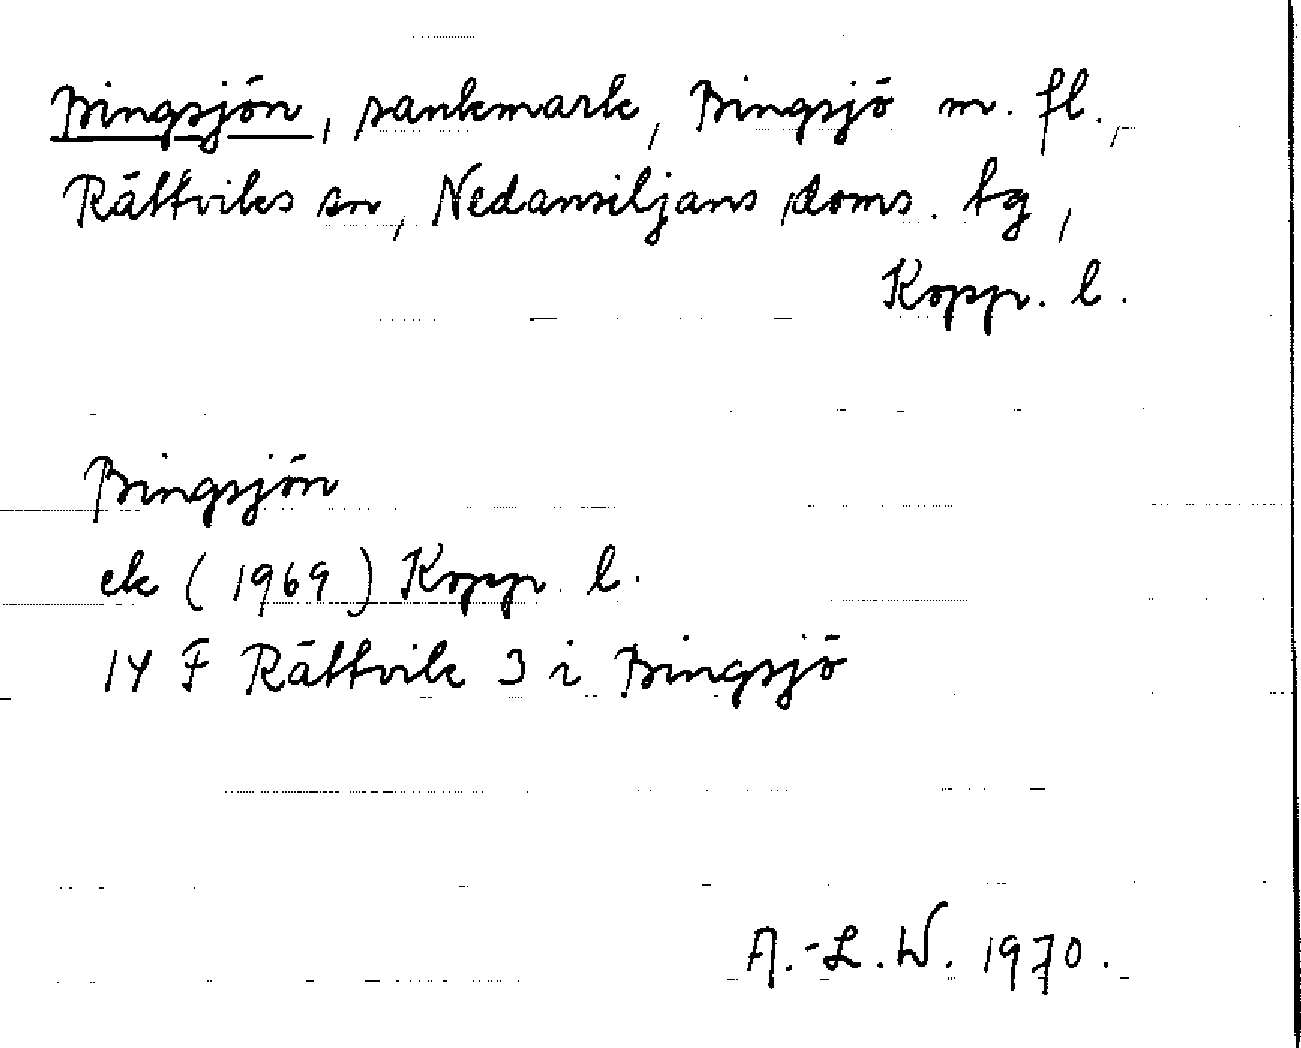 Bingsjön, sankmark, Bingsjö m. fl.,
Rättviks sn, Nedansiljans doms. tg,
Kopp. l.
Bingsjön
ek (1969) Kopp. l.
14 F Rättvik 3 i Bingsjö
A.-L.W. 1970.